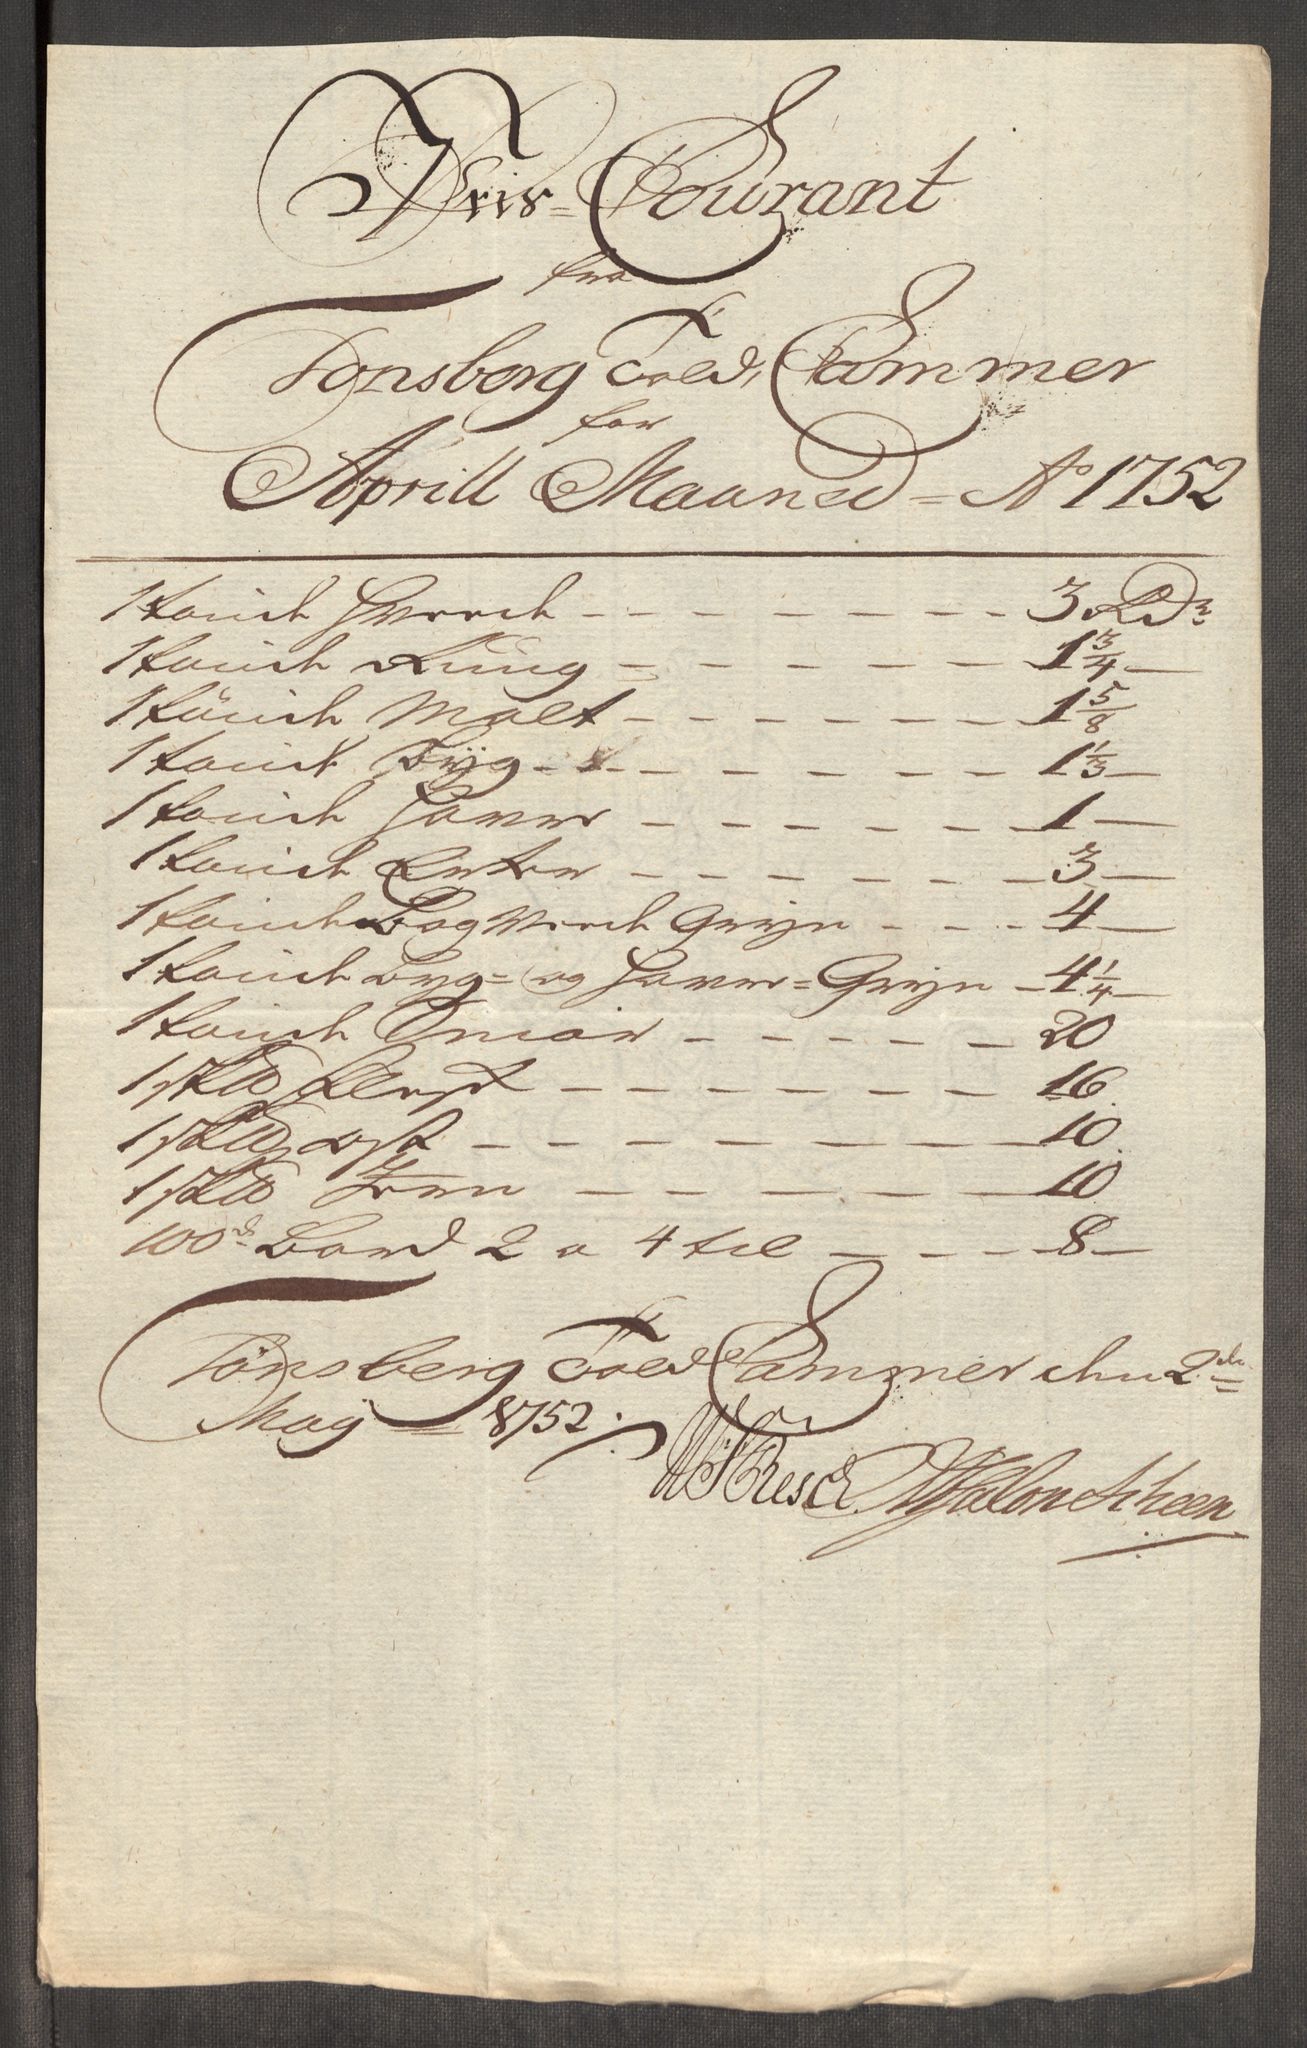 Pris-Courant
fra
Tønsberg Told Cammer
for
Aprill Maaned = Ao 1752
1 tønde Hvede - - - - - - - 3 Rdr
1 tønde Rüug - - - - - - 1 3/4 —
1 tønde Malt - - - - - - 1 5/8
1 tønde Byg - - - - - - - 1 1/3 —
1 tønde Haver - - - - - - - 1 —
1 tønde Erter - - - - - - - 3 —
1 tønde Boghvede Gryn - - - - 4 —
1 tønde Byg= og Haver=Gryn - 4 1/4 —
1 tønde Smør - - - - - - 20
1 sk℔ - - - - - - - 16.
1 sk℔ ost - - - - - - - 10.
1 sk℔ Jern - - - - - - 10
100d Bord 2 a 4 tol - - - - - 8 —
Tønsberg Told Cammer den 2de
Maÿ 1752.